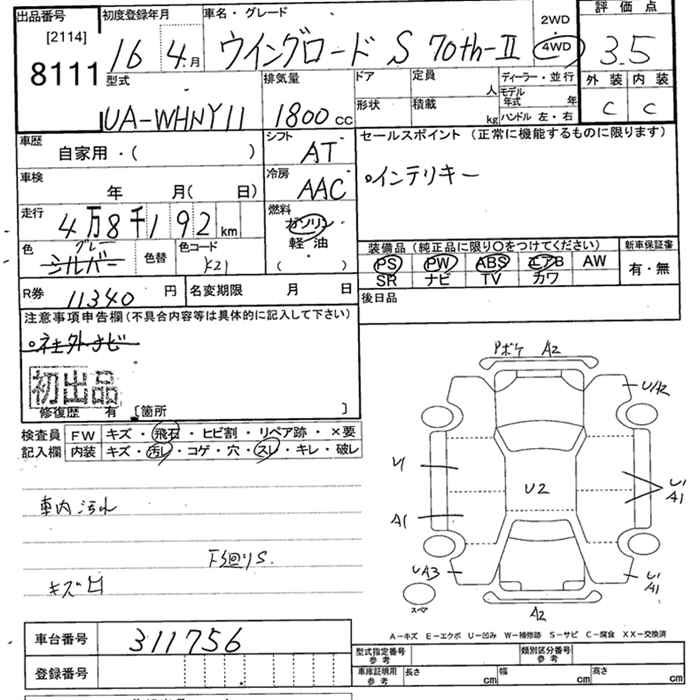 出品番号 初度登録年月 車名・グレード 2WD 評価点
[2114] 16年 4月 ウイングロード S 70th-Ⅱ 4WD 3.5
8111 型式 排気量 ドア 定員 人 ディーラー・並行 外装 内装
UA-WHNY11 1800cc 形状 積載 kg モデル年式 年 C C
ハンドル 左・右
車歴 シフト セールスポイント (正常に機能するものに限ります)
自家用・( ) AT
車検 冷房 ・インテリキー
年 月( 日) AAC
走行 燃料
4万8千192km ガソリン
色 グレー 色替 色コード 軽油 装備品(純正品に限り○をつけてください) 新車保証書
シルバー K21 ( ) PS PW ABS エアB AW 有・無
SR ナビ TV カワ
R券 11340円 名変期限 月 日 後日品
注意事項申告欄(不具合内容等は具体的に記入して下さい)
・社外ナビ
初出品
修復歴 有 [箇所 ]
検査員 FW キズ・飛石・ヒビ割・リペア跡・×要
記入欄 内装 キズ・汚レ・コゲ・穴・スレ・キレ・破レ
Pボケ A2
U/A2
U
U2
U1
A1
A1
車内汚れ
下回りS
UA3
U1
A1
キズ凹
スペア
A2
A-キズ E-エクボ U-凹み W-補修跡 S-サビ C-腐食 XX-交換済
車台番号 311756
型式指定番号 参考 類別区分番号 参考
登録番号 車庫証明用 参考 長さ cm 幅 cm 高さ cm